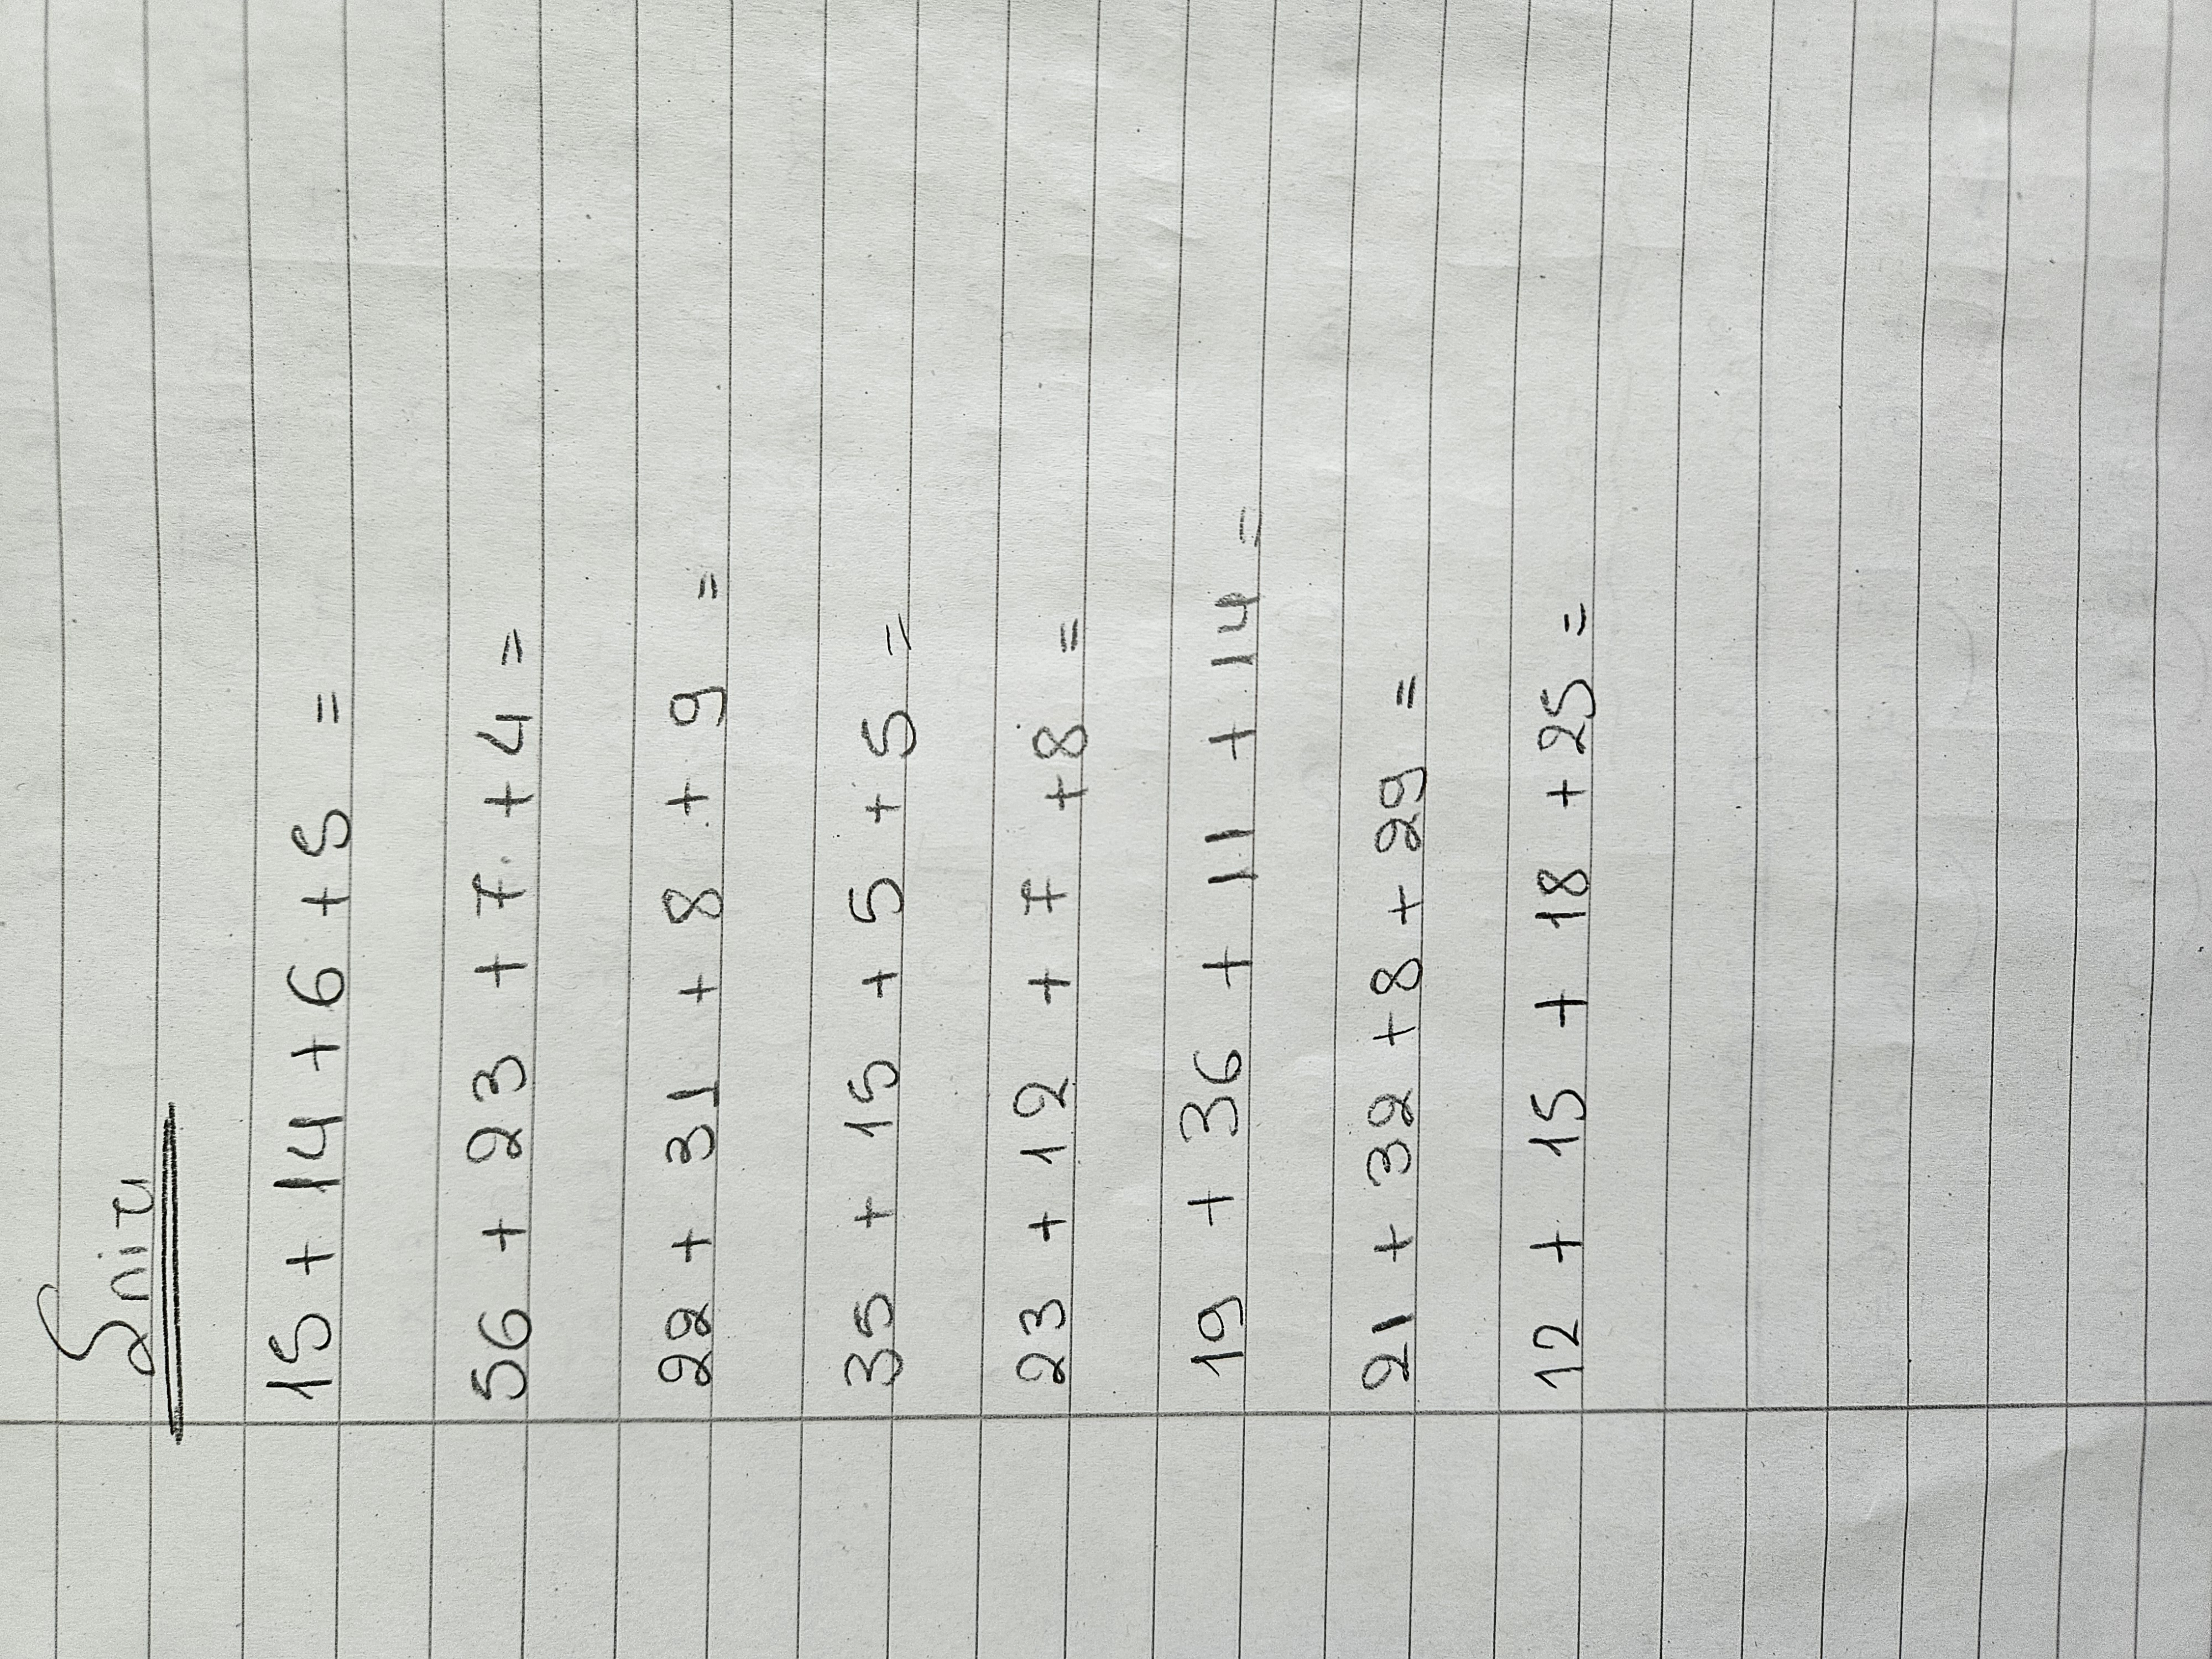 Σπίτι
15 + 14 + 6 + 5 =
56 + 23 + 7 + 4 =
22 + 31 + 8 + 9 =
35 + 15 + 5 + 5 =
23 + 12 + 7 + 8 =
19 + 36 + 11 + 14 =
21 + 32 + 8 + 29 =
12 + 15 + 18 + 25 =